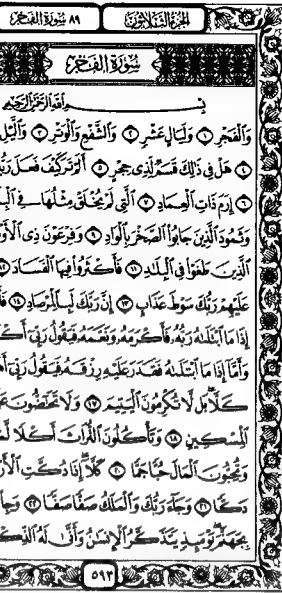 الجزء الثلاثون ٨٩ سورة الفجر
سورة الفجر
بسم الله الرحمن الرحيم
وَالْفَجْرِ ١ وَلَيَالٍ عَشْرٍ ٢ وَالشَّفْعِ وَالْوَتْرِ ٣ وَالَّيْلِ
٤ هَلْ فِي ذَٰلِكَ قَسَمٌ لِّذِي حِجْرٍ ٥ أَلَمْ تَرَ كَيْفَ فَعَلَ رَبُّ
٦ إِرَمَ ذَاتِ الْعِمَادِ ٧ الَّتِي لَمْ يُخْلَقْ مِثْلُهَا فِي الْبِ
وَثَمُودَ الَّذِينَ جَابُوا الصَّخْرَ بِالْوَادِ ٩ وَفِرْعَوْنَ ذِي الْأَوْ
الَّذِينَ طَغَوْا فِي الْبِلَٰدِ ١١ فَأَكْثَرُوا فِيهَا الْفَسَادَ ١٢
عَلَيْهِمْ رَبُّكَ سَوْطَ عَذَابٍ ١٣ إِنَّ رَبَّكَ لَبِالْمِرْصَادِ ١٤ فَأَ
إِذَا مَا ابْتَلَىٰهُ رَبُّهُ فَأَكْرَمَهُ وَنَعَّمَهُ فَيَقُولُ رَبِّي أَكْ
وَأَمَّا إِذَا مَا ابْتَلَىٰهُ فَقَدَرَ عَلَيْهِ رِزْقَهُ فَيَقُولُ رَبِّي أَهَ
كَلَّا بَل لَّا تُكْرِمُونَ الْيَتِيمَ ١٧ وَلَا تَحَٰضُّونَ عَ
الْمِسْكِينِ ١٨ وَتَأْكُلُونَ التُّرَاثَ أَكْلًا لَّ
وَتُحِبُّونَ الْمَالَ حُبًّا جَمًّا ٢٠ كَلَّا إِذَا دُكَّتِ الْأَرْ
دَكًّا ٢١ وَجَاءَ رَبُّكَ وَالْمَلَكُ صَفًّا صَفًّا ٢٢ وَجِا
بِجَهَنَّمَ يَوْمَئِذٍ يَتَذَكَّرُ الْإِنسَٰنُ وَأَنَّىٰ لَهُ الذِّكْ
٥٩٣